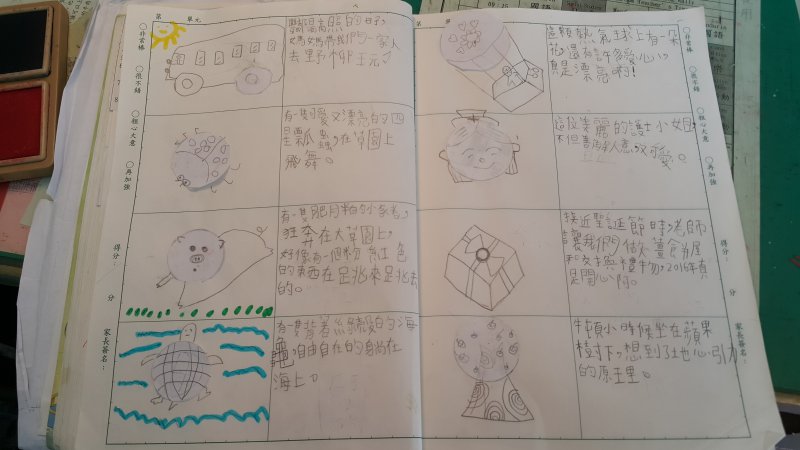 第 單元
○非常棒
○很不錯
○粗心大意
○再加強
得分：
分
家長簽名：
陽高照的日子，
媽媽帶我們一家人
去野柳玩。
有一隻可愛又漂亮的四
星瓢蟲，在草園上
飛舞。
有一隻肥胖的小豬，
狂奔在大草園上，
好像有一個粉紅色
的東西在跳來跳去
的。
有一隻背著綠殼的海
龜自由自在的躺在
海上。
第
這顆熱氣球上有一朵
花，還有許多愛心，
真是漂亮啊！
這位美麗的護士小姐，
不但善解人意，又可愛。
接近聖誕節時，老師
讓我們做薑餅屋
和交換禮物，2016年真
是開心阿。
牛頓小時候坐在蘋果
樹下，想到了地心引力
的原理。
○非常棒
○很不錯
○粗心大意
○再加強
得分：
分
家長簽名：